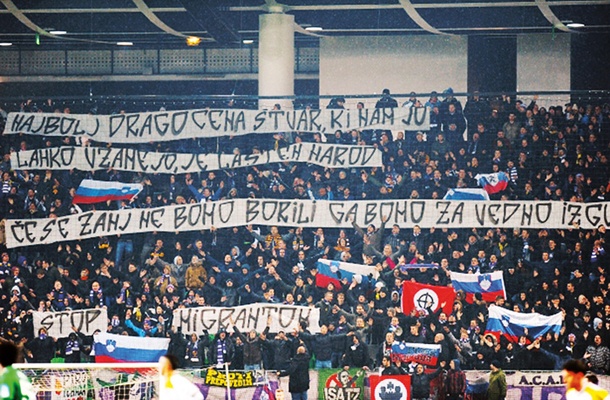 NAJBOLJ DRAGOCENA STVAR, KI NAM JO
LAHKO VZAMEJO, JE LASTEN NAROD
ČE SE ZANJ NE BOMO BORILI GA BOMO ZA VEDNO IZGU
STOP MIGRANTOM
A.C.A.B